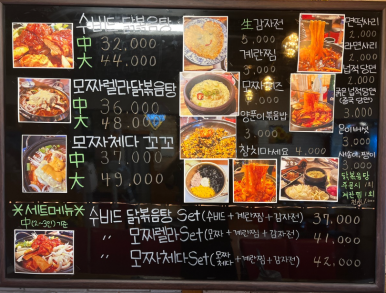 수비드 닭볶음탕
中 32,000
大 44,000
모짜렐라닭볶음탕
中 36,000
大 48,000
모짜체다 꼬꼬
中 37,000
大 49,000
生감자전
5,000
계란찜
3,000
모짜치즈
3,000
볶음밥
3,000
참치마요 4,000
면떡사리
라면사리
넙적당면
3,000
팽이버섯
3,000
닭볶음탕
주문시
※세트메뉴※
中(2~3인) 기준
수비드 닭볶음탕 Set(수비드+계란찜+감자전) 37,000
〃 모짜렐라 Set(모짜+계란찜+감자전) 41,000
〃 모짜체다 Set(모짜체다+계란찜+감자전) 42,000